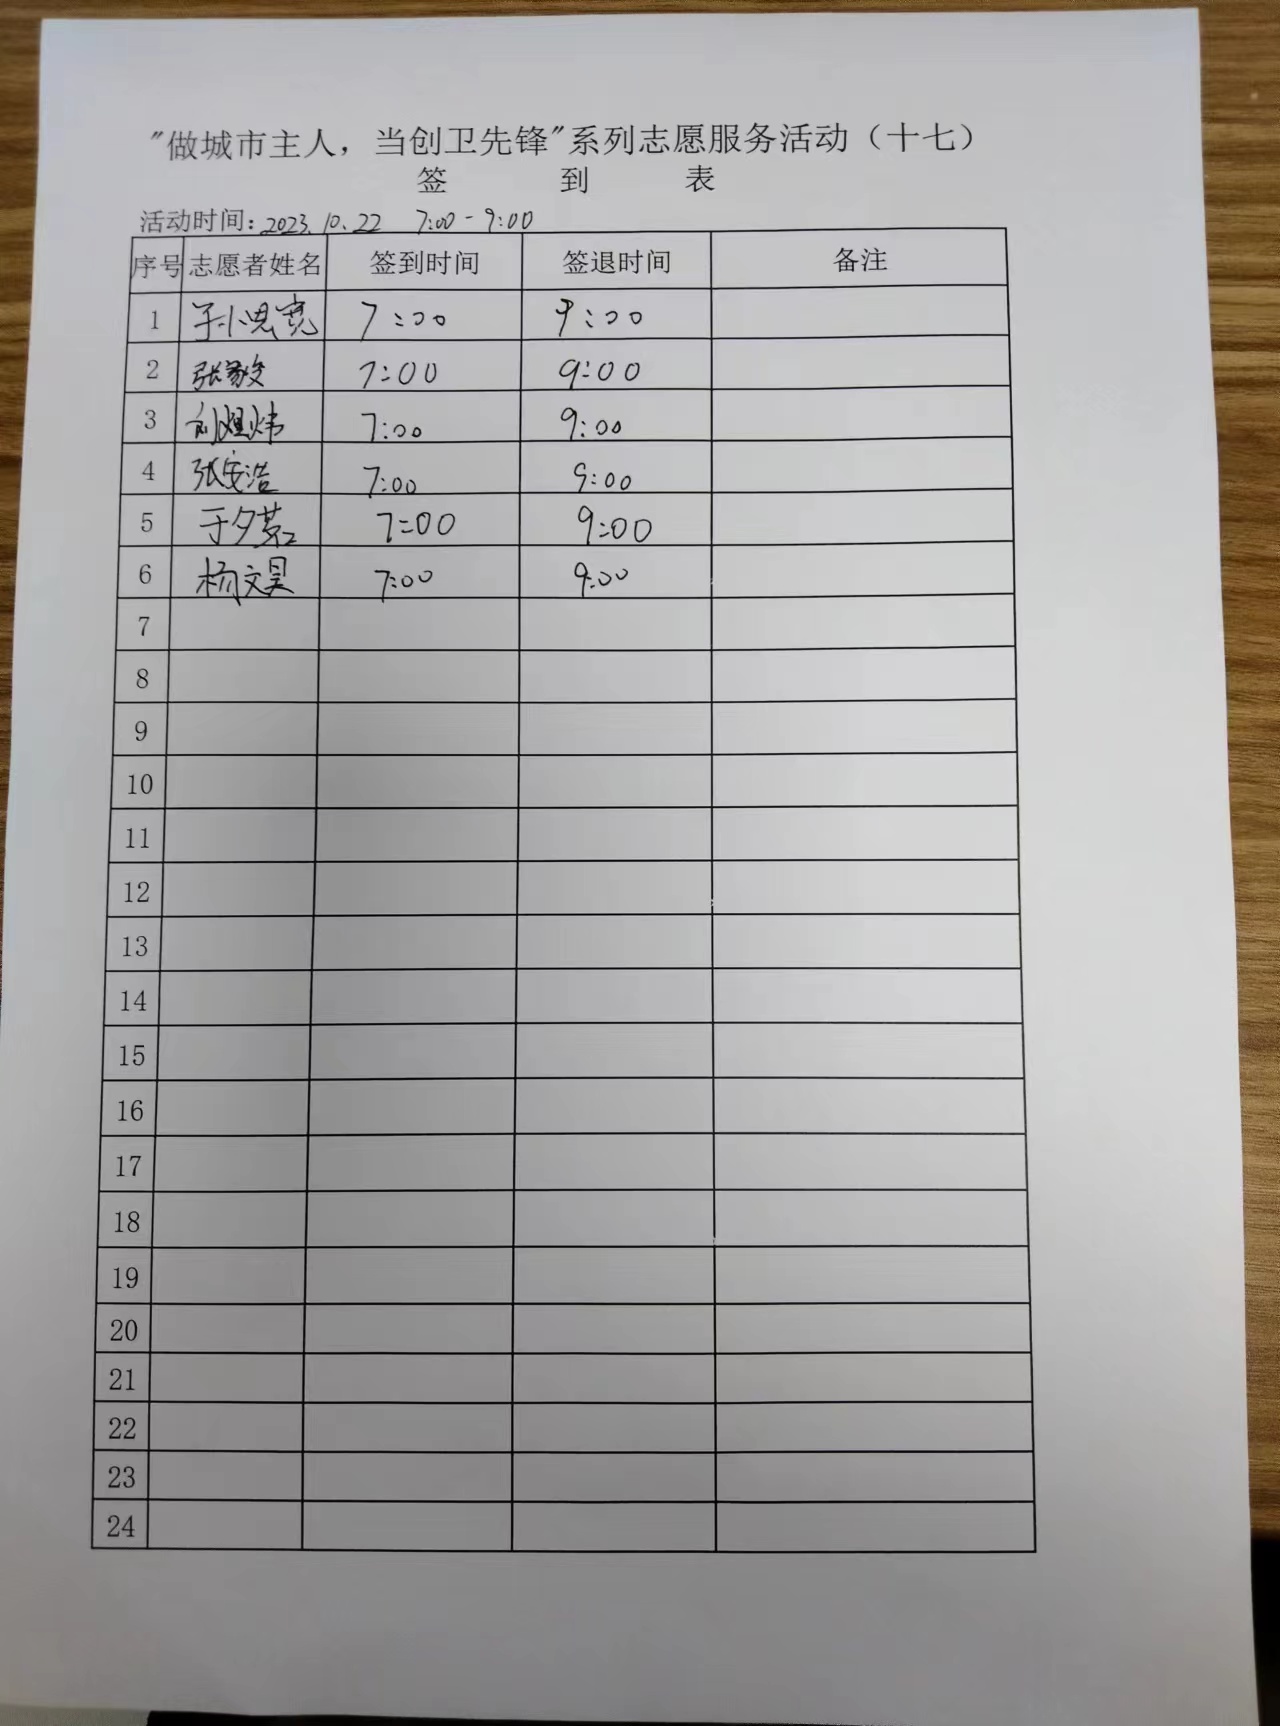 "做城市主人，当创卫先锋"系列志愿服务活动（十七）
签 到 表
活动时间：2023.10.22 7:00-9:00
序号 志愿者姓名 签到时间 签退时间 备注
1 7:00 9:00
2 张敏 7:00 9:00
3 7:00 9:00
4 张安浩 7:00 9:00
5 于夕茹 7:00 9:00
6 杨文昊 7:00 9:00
7
8
9
10
11
12
13
14
15
16
17
18
19
20
21
22
23
24